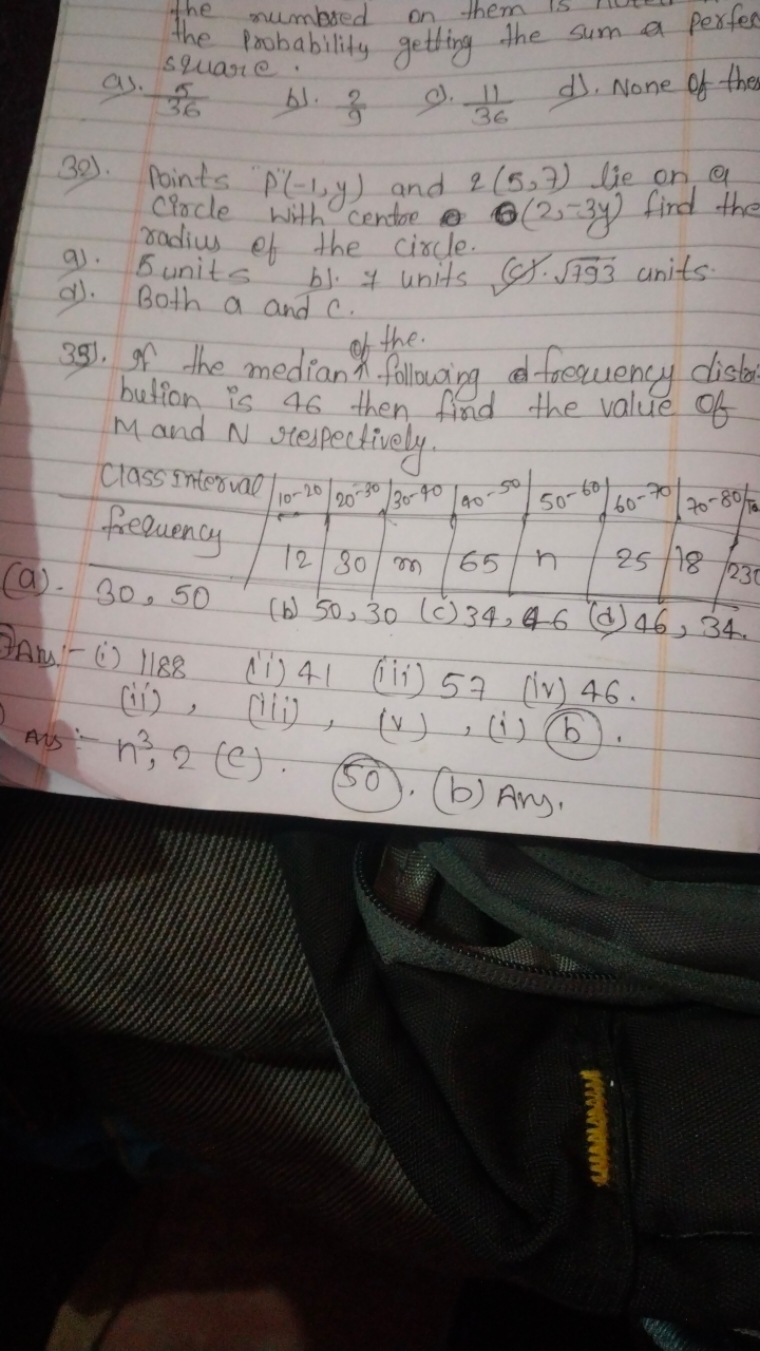 the numbsed on them is
the Probability getting the sum a perfec
square.
a). 5/36 b). 2/9 c). 11/36 d). None of the
32). Points P(-1,y) and 2(5,7) lie on a
Circle with centre O(2,-3y) find the
radius of the circle.
a). 5 units b). 7 units (c). √793 units.
d). Both a and c.
of the.
33). If the median following frequency distri-
bution is 46 then find the value of
M and N respectively.
Class interval 10-20 20-30 30-40 40-50 50-60 60-70 70-80
frequency 12 30 m 65 n 25 18 230
(a). 30, 50 (b) 50, 30 (c) 34, 46 (d) 46, 34.
Ans:- (i) 1188 (ii) 41 (iii) 57 (iv) 46.
(ii), (iii), (v), (i) (b).
Ans:- n³, 2 (c). 50. (b) Ans.